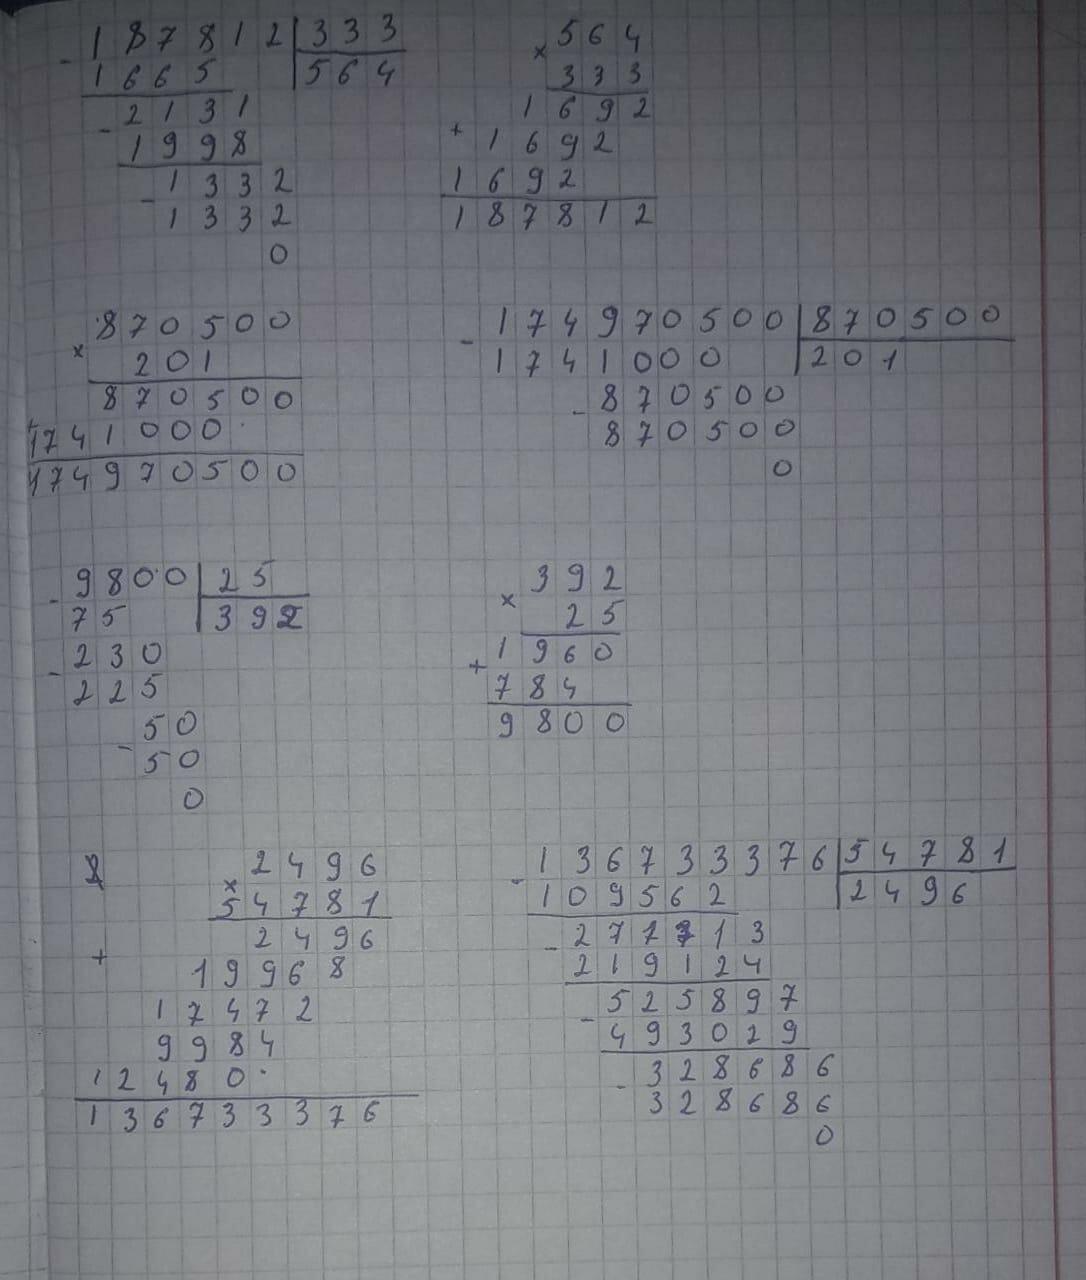 - 187812 | 333
1665 | 564
- 2131
1998
- 1332
1332
0
× 564
333
1692
+ 1692
1692
187812
× 870500
201
870500
+ 1741000
174970500
- 174970500 | 870500
1741000 | 201
- 870500
870500
0
- 9800 | 25
75 | 392
- 230
225
- 50
50
0
× 392
25
1960
+ 784
9800
× 2496
54781
2496
+ 19968
17472
9984
12480
136733376
- 136733376 | 54781
109562 | 2496
- 277713
219124
- 525897
493029
- 328686
328686
0